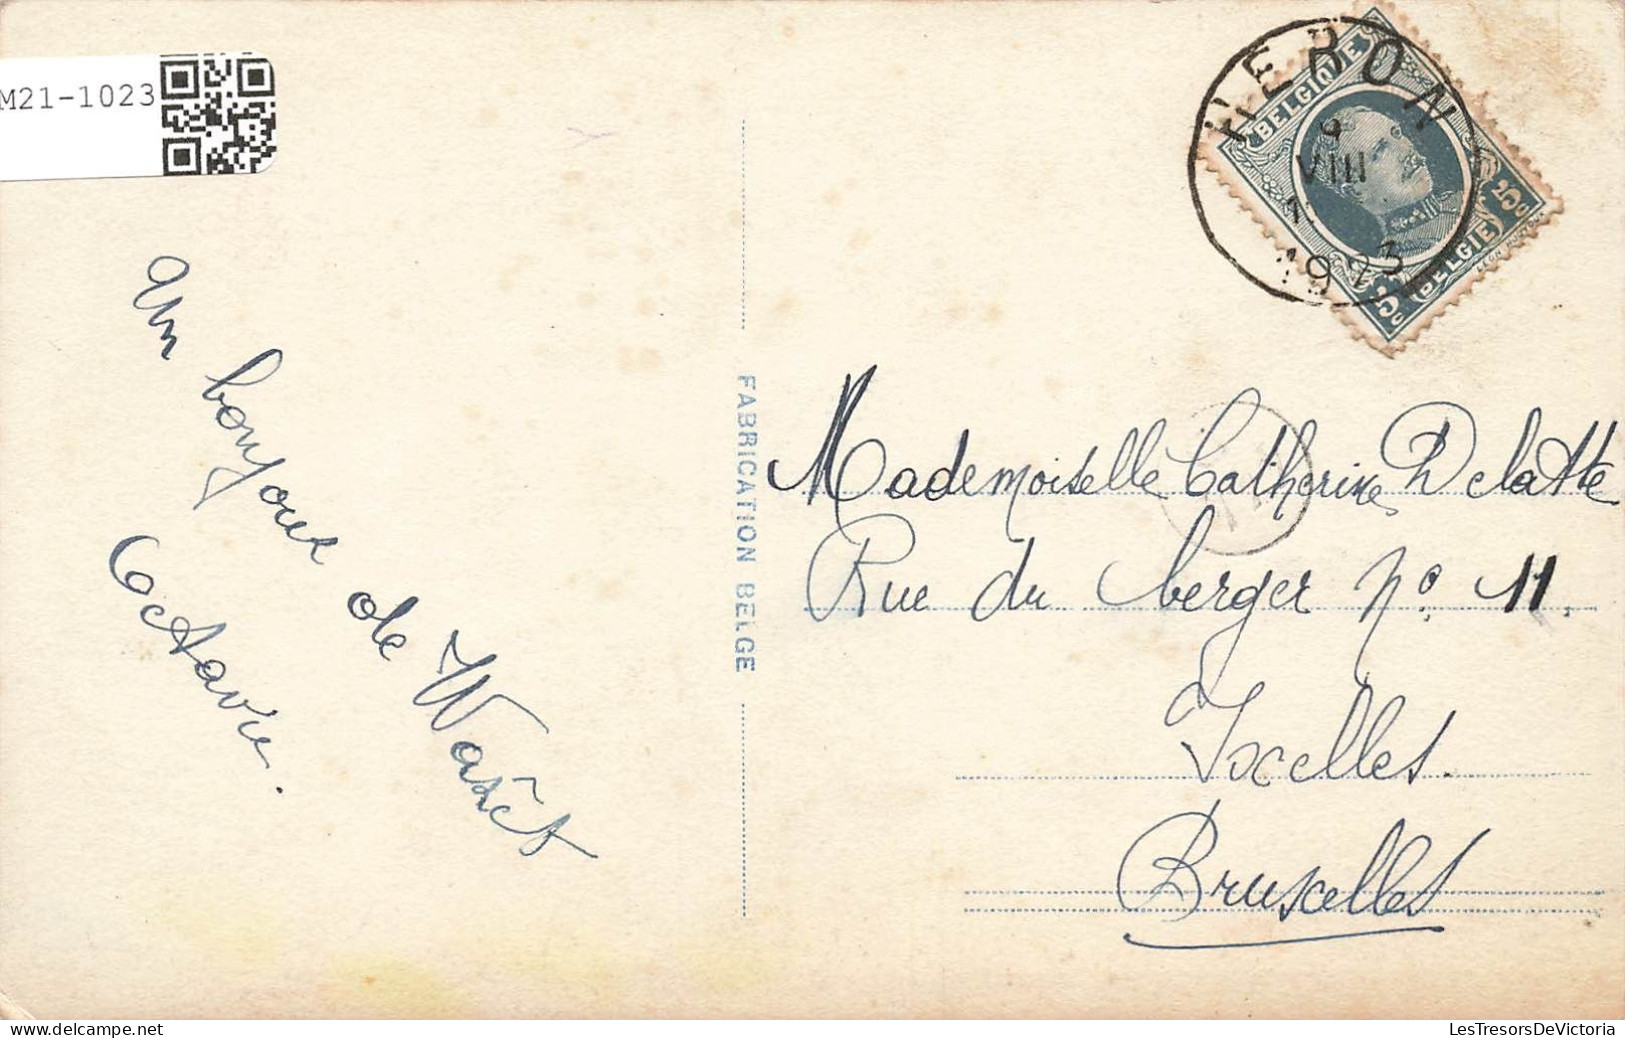 M21-1023
Un bonjour de Warêt
Octavie.
FABRICATION BELGE
HERON
9
VIII
1923
BELGIQUE
25c
BELGIË
25c
Mademoiselle Catherine Delatte
Rue du berger No. 11.
Ixelles.
Bruxelles
LesTresorsDeVictoria